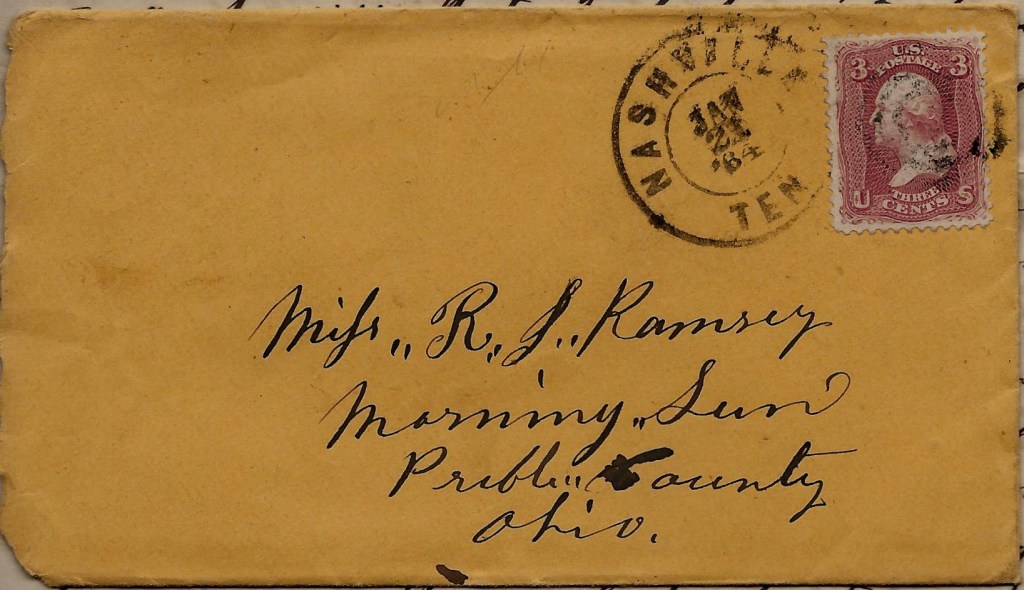 NASHVILLE
TEN
JAN
21
'64
3 U.S. 3
POSTAGE
THREE
U CENTS S
Miss,, R,, J,, Ramsey
Morning,, Sun
Preble,, County
Ohio.